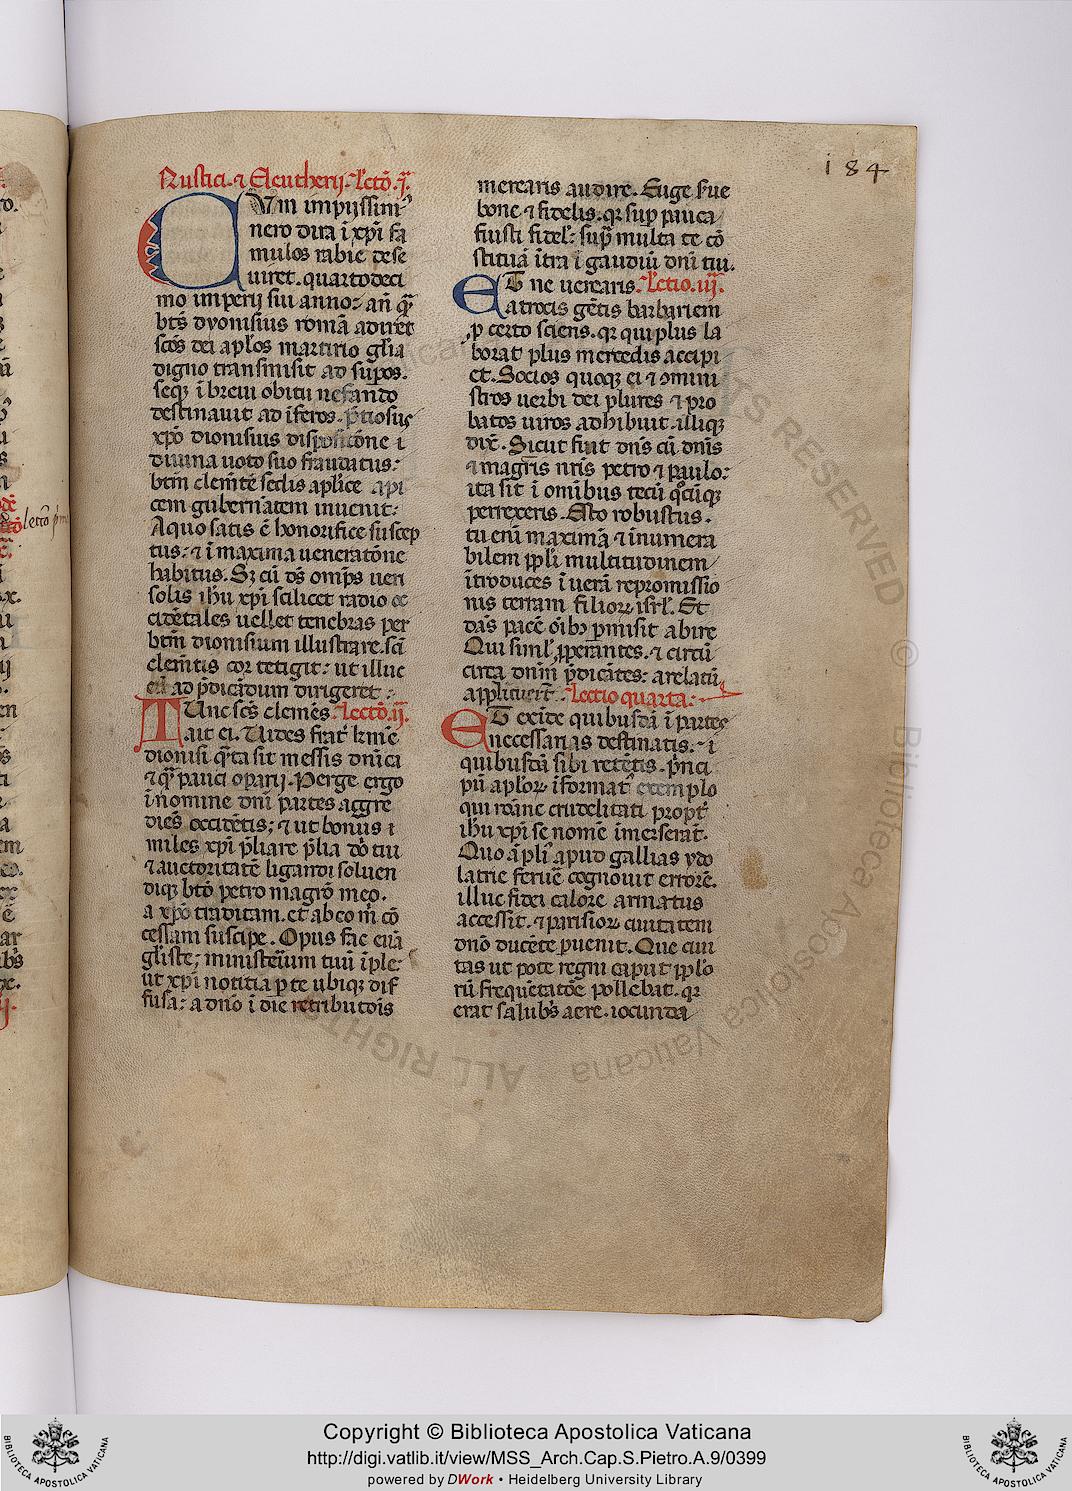 184
Rustici ⁊ Eleutherij. Lectō. j̄.
Cum impijssimꝰ
nero dira ī xp̄i fa
mulos rabie dese
viret. quartodeci
mo imperij sui anno: an̄ qꝫ
bt̄s dyonisius romā adiret
scōs dei ap̄los martirio gl̄ia
digno transmisit ad suꝑos.
seqꝫ ī breui obitu nefando
destinauit ad īferos. p̄tiosus
xp̄o dionisius dispositōne ī
diuina uoto suo fraudatus:
btm̄ clemētē sedis apl̄ice api
cem gubernātem inuenit:
A quo satis ē honorifice suscep
tus: ⁊ ī maxima ueneratōne
habitus. Sꝫ cū dꝰ omp̄s ueri
solis ih̄u xp̄i scilicet radio oc
cidētales uellet tenebras per
btm̄ dionisium illustrare. scī
clemētis cor tetigit: ut illuc
eū ad p̄dicādum dirigeret:
Tunc scs̄ clemēs Lectō. ij.
ait ei. Uides frat̄ kͬmē
dionisi qͣta sit messis dn̄ica
⁊ qꝫ pauci oꝑarij. Perge ergo
ī nomine dn̄i partes aggre
diēs occidētis; ⁊ ut bonus ī
miles xp̄i p̄liare p̄lia dō tui
⁊ auctoritatē ligandi soluen
diqꝫ btō petro magrō meo.
a xp̄o traditam. et ab eo m̄ cō
cessam suscipe. Opus fac euā
gl̄iste; ministeiium tuū īple:
ut xp̄i notitia ꝑ te ubiqꝫ dif
fusa: a dn̄o ī die retributōis
merearis audire. Euge s̄ue
bone ⁊ fidelis. qꝛ suꝑ pauca
fuisti fidel̄: suꝑ multa te cō
stituā ītra ī gaudiū dn̄i tui.
Et ne uerearis. Lectio. iij.
atrocis gētis barbariem
ꝓ certo sciens. qꝛ qui plus la
borat plus mercedis accipi
et. Socios quoqꝫ ei ⁊ ꝯmini
stros uerbi dei plures ⁊ pro
batos uiros adhibuit. illiqꝫ
dix̄. Sicut fuit dn̄s cū dn̄is
⁊ magr̄is nr̄is petro ⁊ paulo:
ita sit ī omībus tecū qͦcūqꝫ
perrexeris. Esto robustus.
tu enī maximā ⁊ īnumera
bilem ppl̄i multitudinem
ītroduces ī uerā repromissio
nis terram filioꝝ isrl̄. Et
dās pacē oībꝫ ꝑmisit abire
Qui simul̄ ꝓꝑantes. ⁊ circū
circa dn̄m p̄dicātes: arelatū
applicuerūt. Lectio quarta:
Et exīde quibusdā ī partes
necessarias destinatis. ⁊ ī
quibusdā sibi retētis. p̄nci
pū apl̄oꝝ īformat̄ exemplo
qui reāne crudelitati propt̄
ih̄u xp̄i se nomē īmerserāt.
Quo āpli᷒ apud gallias ydo
latrie feruē cognouit errorē.
illuc fidei calore armatus
accessit. ⁊ parisioꝝ ciuitatem
dn̄o ducēte ꝑuenit. Que ciui
tas ut pote regni caput ppl̄o
rū frequētatōe pollebat. qꝛ
erat salubꝰ aere. iocunda
lectō pͥma
Copyright © Biblioteca Apostolica Vaticana
http://digi.vatlib.it/view/MSS_Arch.Cap.S.Pietro.A.9/0399
powered by DWork • Heidelberg University Library
BIBLIOTECA APOSTOLICA VATICANA
BIBLIOTECA APOSTOLICA VATICANA
© Biblioteca Apostolica Vaticana
ALL RIGHTS RESERVED